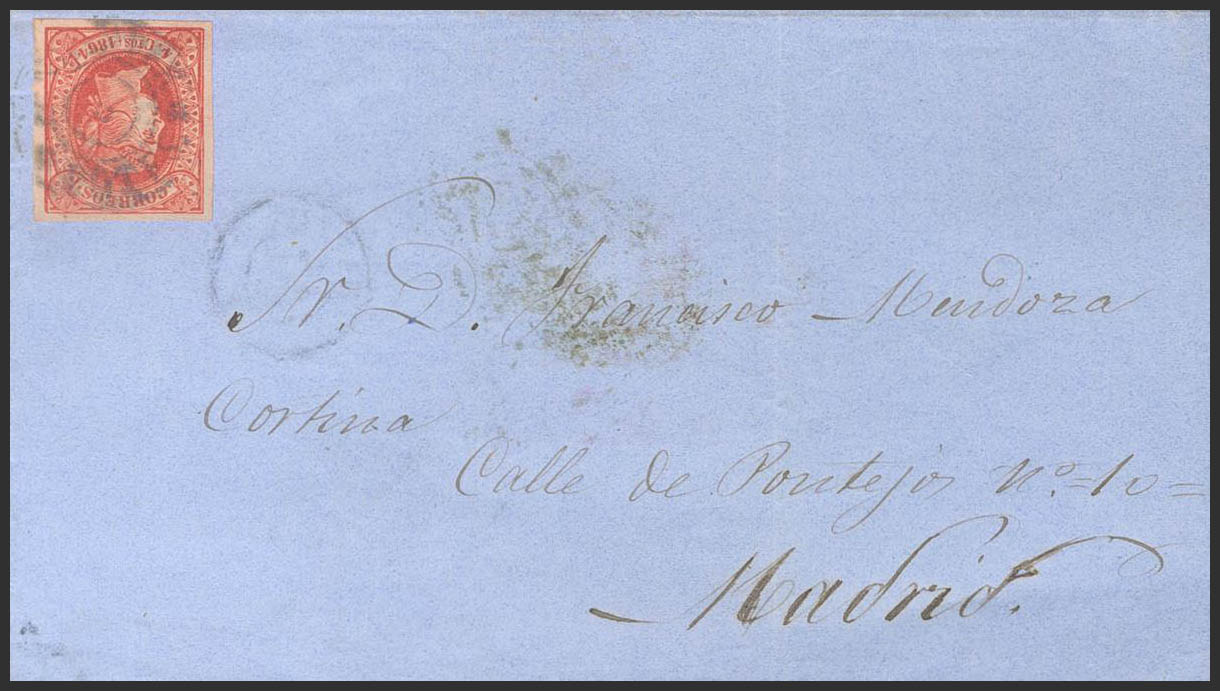 4 CTOS. 1864
CORREOS
Sr. D. Francisco Mendoza
Cortina
Calle de Pontejos nº = 10 =
Madrid.